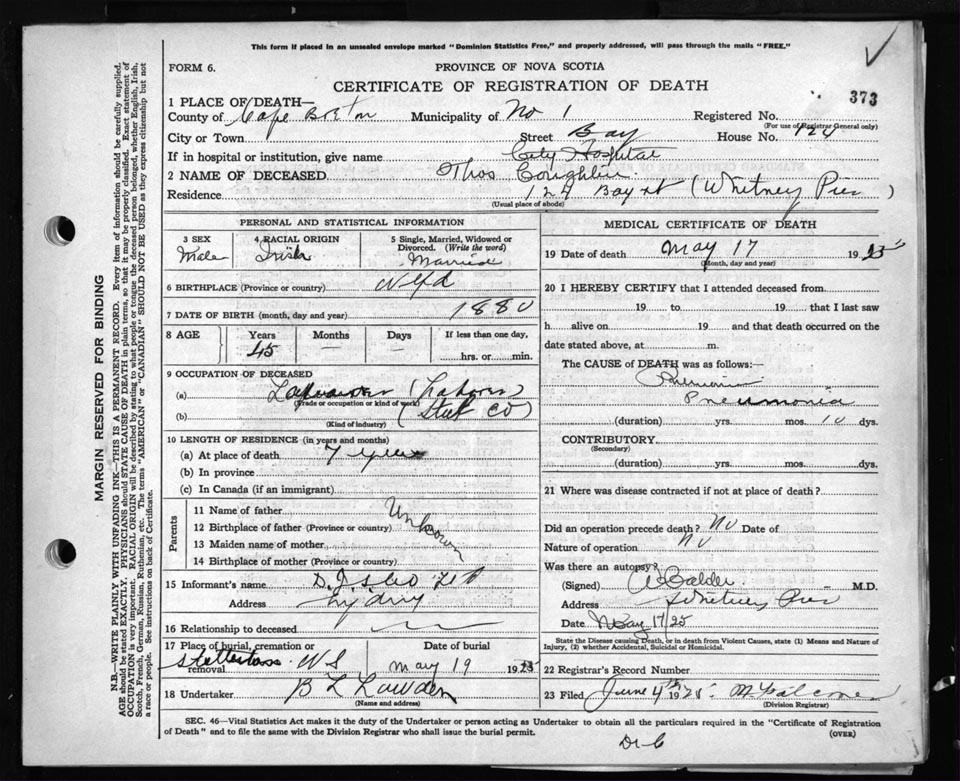 This form if placed in an unsealed envelope marked "Dominion Statistics Free," and properly addressed, will pass through the mails "FREE."
FORM 6.
PROVINCE OF NOVA SCOTIA
CERTIFICATE OF REGISTRATION OF DEATH
373
1 PLACE OF DEATH—
County of Cape Breton Municipality of No 1 Registered No.
(For use of Registrar General only)
City or Town Street Bay House No. 124
If in hospital or institution, give name City Hospital
2 NAME OF DECEASED Thos Coughlin
Residence 124 Bay st (Whitney Pier)
(Usual place of abode)
PERSONAL AND STATISTICAL INFORMATION
3 SEX Male
4 RACIAL ORIGIN Irish
5 Single, Married, Widowed or Divorced. (Write the word) Married
6 BIRTHPLACE (Province or country) Nfd
7 DATE OF BIRTH (month, day and year) 1880
8 AGE Years Months Days If less than one day,
45 — — hrs. or min.
9 OCCUPATION OF DECEASED
(a) (Labourer
(Trade or occupation or kind of work)
(b) (Steel Co)
(Kind of industry)
10 LENGTH OF RESIDENCE (in years and months)
(a) At place of death 7 years
(b) In province
(c) In Canada (if an immigrant)
Parents
11 Name of father
12 Birthplace of father (Province or country) Unknown
13 Maiden name of mother
14 Birthplace of mother (Province or country)
15 Informant's name
Address Sydney
16 Relationship to deceased
17 Place of burial, cremation or removal N S May 19 1925
18 Undertaker B L Lowden
(Name and address)
MEDICAL CERTIFICATE OF DEATH
19 Date of death May 17 1925
(Month, day and year)
20 I HEREBY CERTIFY that I attended deceased from
19 to 19 that I last saw
h alive on 19 and that death occurred on
date stated above, at m.
The CAUSE of DEATH was as follows:—
Pneumonia
(duration) yrs. mos. 10 dys.
CONTRIBUTORY
(Secondary)
(duration) yrs. mos. dys.
21 Where was disease contracted if not at place of death?
Did an operation precede death? No Date of
Nature of operation No
Was there an autopsy?
(Signed) Calder M.D.
Address Whitney Pier
Date May 17 25
State the Disease causing Death, or in death from Violent Causes, state (1) Means and Nature of Injury, (2) whether Accidental, Suicidal or Homicidal.
22 Registrar's Record Number
23 Filed June 4th 1925
(Division Registrar)
SEC. 46—Vital Statistics Act makes it the duty of the Undertaker or person acting as Undertaker to obtain all the particulars required in the "Certificate of Registration
of Death" and to file the same with the Division Registrar who shall issue the burial permit.
(OVER)
MARGIN RESERVED FOR BINDING
N.B.—WRITE PLAINLY WITH UNFADING INK—THIS IS A PERMANENT RECORD. Every item of information should be carefully supplied.
AGE should be stated EXACTLY. PHYSICIANS should STATE CAUSE OF DEATH in plain terms, so that it may be properly classified. Exact statement of
OCCUPATION is very important. RACIAL ORIGIN will be described by stating to what people or tongue the deceased person belonged, whether English, Irish,
Scotch, French, German, Russian, Ruthenian, etc. The terms "AMERICAN" or "CANADIAN" SHOULD NOT BE USED as they express citizenship but not
a race or people. See instructions on back of Certificate.